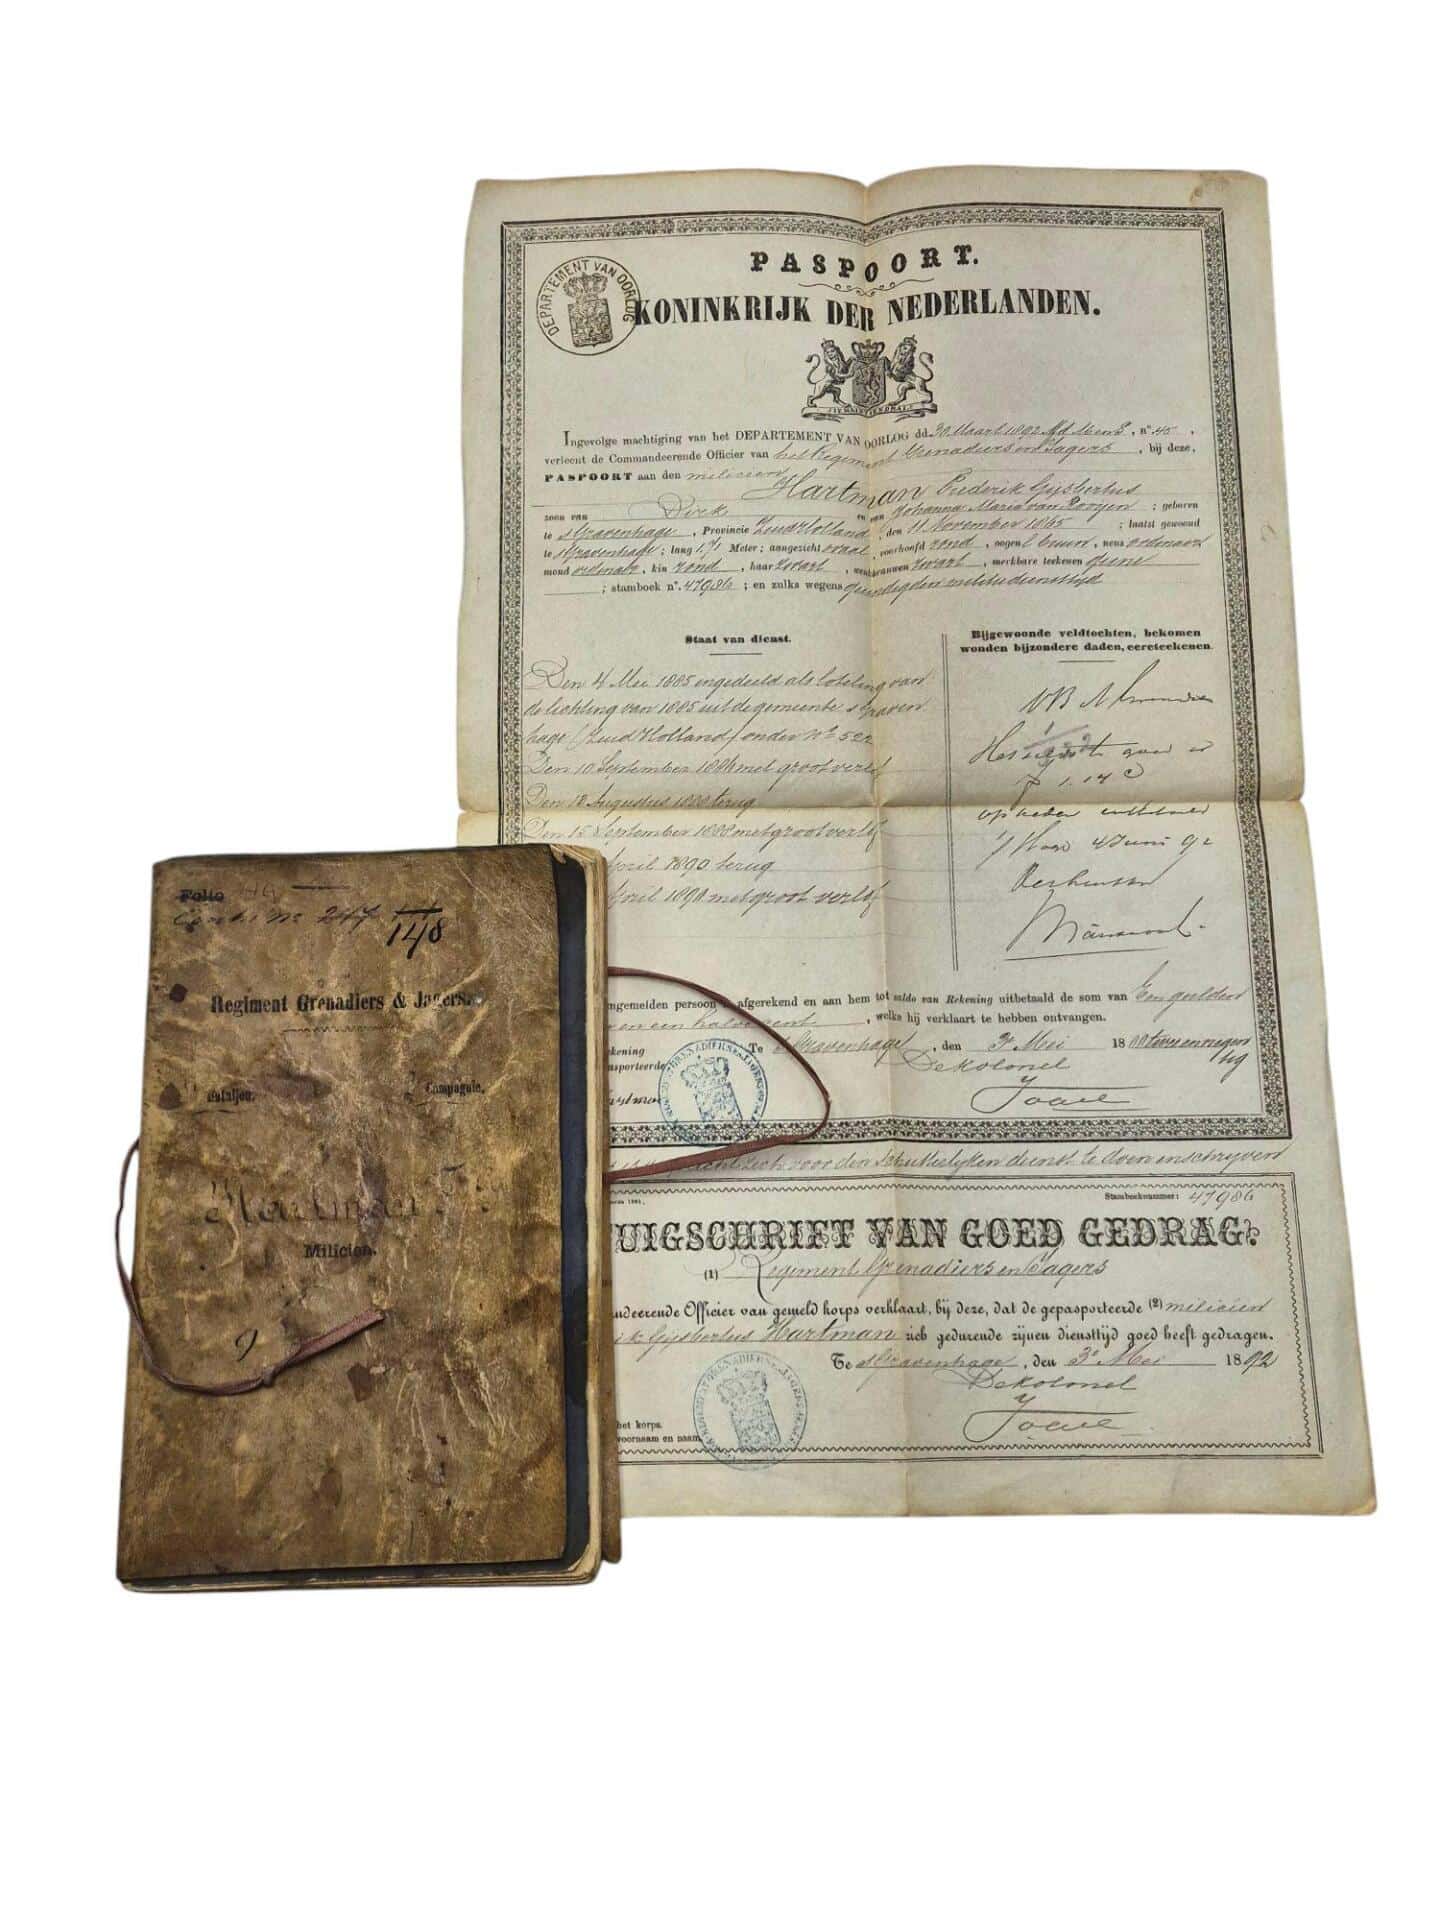 PASPOORT.
KONINKRIJK DER NEDERLANDEN.
DEPARTEMENT VAN OORLOG
JE MAINTIENDRAI
Ingevolge machtiging van het DEPARTEMENT VAN OORLOG dd. 30 Maart 1892 , n° 45 ,
verleent de Commandeerende Officier van het Regiment Grenadiers en Jagers , bij deze,
PASPOORT aan den milicien
Hartman Frederik Gijsbertus
zoon van Dirk en van Johanna Maria van Rooijen ; geboren
te s'Gravenhage , Provincie Zuid Holland , den 11 November 1865 ; laatst gewoond
te s'Gravenhage ; lang 1.71 Meter ; aangezicht ovaal , voorhoofd rond , oogen bruin , neus ordinair
mond ordinair , kin rond , haar zwart , wenkbrauwen zwart , merkbare teekenen geene
; stamboek n°. 47986 ; en zulks wegens geëindigden militiediensttijd
Staat van dienst.
Den 4 Mei 1885 ingedeeld als loteling van
de lichting van 1885 uit de gemeente s'Graven
hage (Zuid Holland) onder N° 522
Den 10 September 1886 met groot verlof
Den 12 Augustus 1888 terug
Den 15 September 1888 met groot verlof
April 1890 terug
April 1890 met groot verlof
Bijgewoonde veldtochten, bekomen
wonden bijzondere daden, eereteekenen.
ƒ 1.14
op heden
4 Juni 92
ngemelden persoon is afgerekend en aan hem tot saldo van Rekening uitbetaald de som van Een gulden
en een halve cent , welke hij verklaart te hebben ontvangen.
Te s'Gravenhage , den 3 Mei 1800 twee en negen
tig
De Kolonel
zich voor den Schutterlijken dienst te doen inschrijven
Stamboeknummer: 47986
UIGSCHRIFT VAN GOED GEDRAG.
(1) Regiment Grenadiers en Jagers
ndeerende Officier van gemeld korps verklaart, bij deze, dat de gepasporteerde (2) milicien
ik Gijsbertus Hartman zich gedurende zijnen diensttijd goed heeft gedragen.
Te s'Gravenhage , den 3 Mei 1892
De Kolonel
het korps.
voornaam en naam
Folio
N° 247
148
Regiment Grenadiers & Jagers.
Bataljon. Compagnie.
Hartman F.
Milicien.